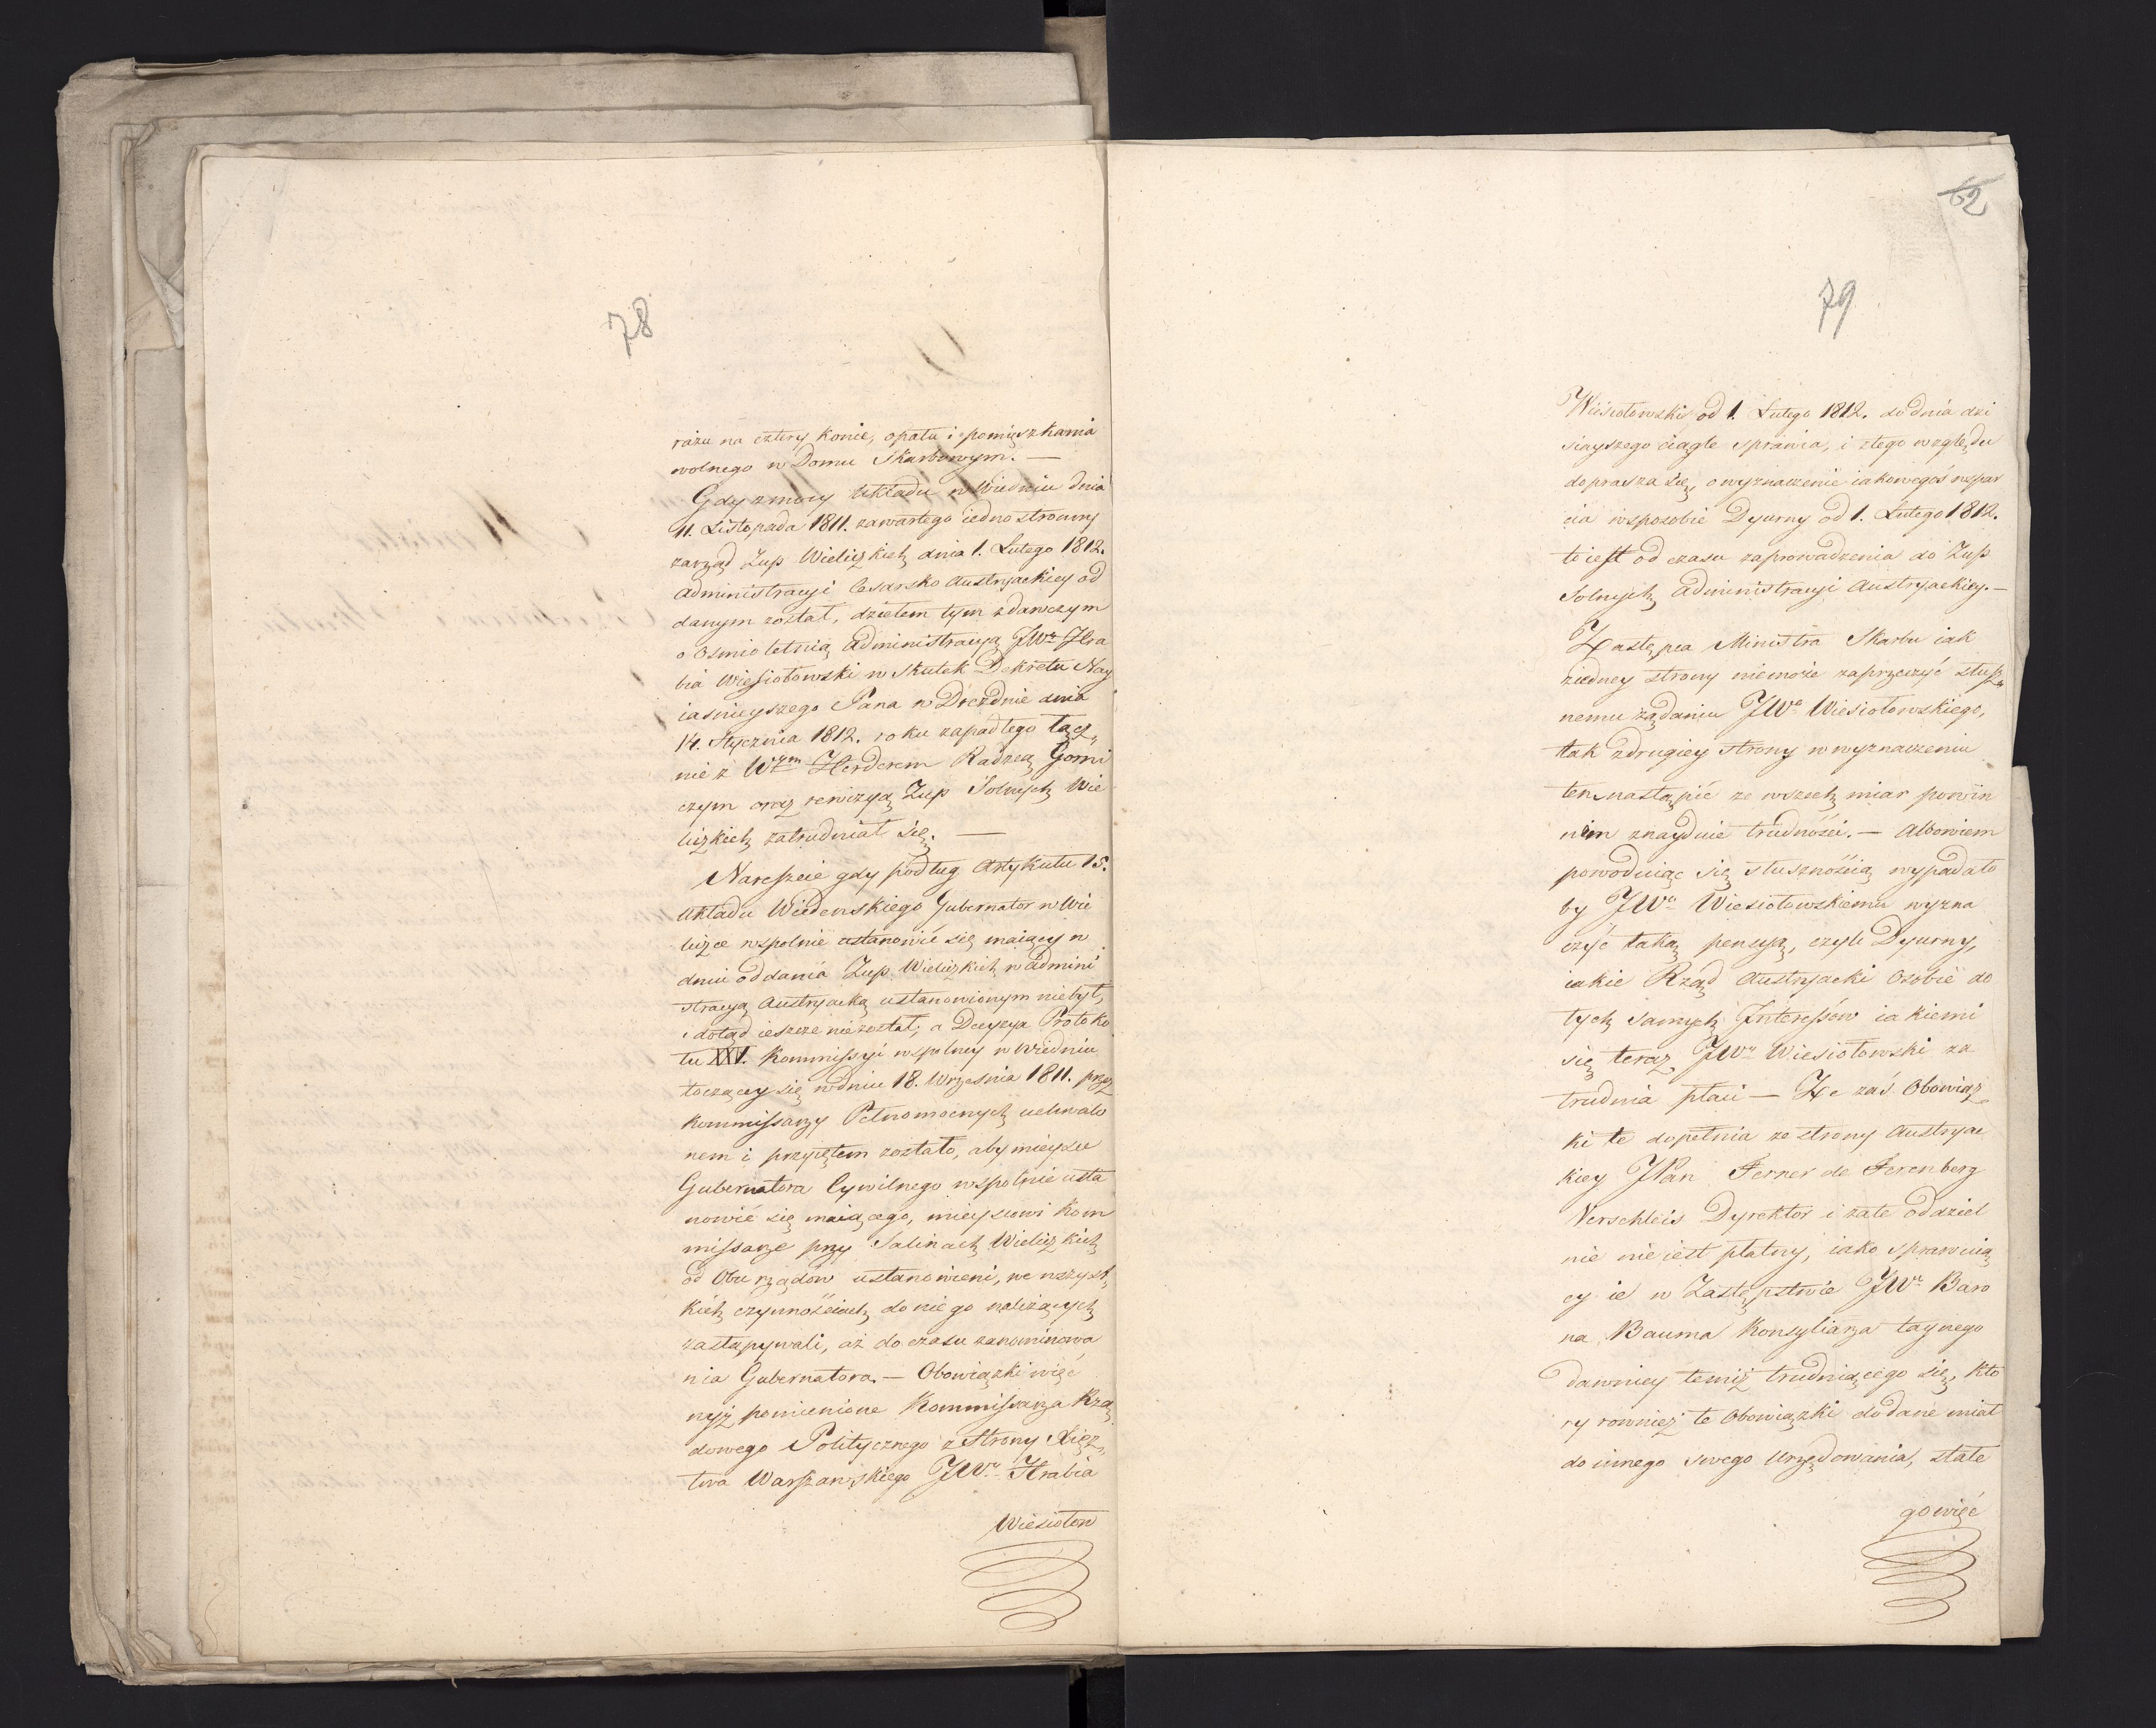 78
razu na cztery konie, opału i pomięszkania
wolnego w Domu Skarbowym. —
Gdy z mocy Układu w Wiedniu dnia
11. Listopada 1811. zawartego iednostronny
zarząd Żup Wielizkich dnia 1. Lutego 1812.
Administracyi Cesarsko Austryackiey od
danym został, dziełem tym zdawczym
o Osmioletnią Administracyą JWny Hra
bia Wiesiołowski w skutek Dekretu Nay
iasnieyszego Pana w Dreźdnie dnia
14. Stycznia 1812. roku zapadłego łącz„
nie z Wzym Herderem Radzcą Gorni
czym oraz rewizyą Żup Solnych Wie
lizkich zatrudniał się. —
Nareszcie gdy podług Artykułu 15.
Układu Wiedenskiego Gubernator w Wie
lizce wspolnie ustanowić się maiący w
dniu oddania Żup Wielizkich w Admini
stracyą Austryacką ustanowionym niebył,
i dotąd ieszcze niezostał; a Decyzya Protoko
łu XXV. Kommissyi wspolney w Wiedniu
toczącey się w dniu 18. Września 1811. przez
Kommissarzy Pełnomocnych uchwalo
nem i przyiętem zostało, aby mieysce
Gubernatora Cywilnego wspolnie usta
nowić się maiącego, mieyscowi Kom
missarze przy Salinach Wielizkich
od Obu rządów ustanowieni, we wszyst„
kich czynnościach do niego należących
zastępywali, aż do czasu zanominowa
nia Gubernatora. — Obowiązki więc
wyż pomienione Kommissarza Rzą
dowego Politycznego z Strony Xięz„
twa Warszawskiego JWny Hrabia
Wiesiołow
62
79
Wiesiołowski od 1. Lutego 1812. do dnia dzi
sieyszego ciągle sprawia, i z tego względu
doprasza się, o wyznaczenie iakowegoś wspar
cia w sposobie Dyurny od 1. Lutego 1812.
to iest od czasu zaprowadzenia do Żup
Solnych Administracyi Austryackiey. —
Zastępca Ministra Skarbu iak
ziedney strony niemoże zaprzeczyć słusz„
nemu żądaniu JWo Wiesiołowskiego,
tak zdrugiey strony w wyznaczeniu
ten nastąpić ze wszech miar powin
nim znayduie trudności. — Albowiem
powoduiąc się słusznością wypadało
by JWu Wiesiołowskiemu wyzna
czyć taką pensyą, czyli Dyurny,
iakie Rząd Austryacki Osobie do
tych samych Interessów iakiemi
się teraz JWny Wiesiołowski za
trudnia płaci — Że zaś Obowiąz„
ki te dopełnia ze strony Austryac
kiey JPan Ferner de Ferenberg
Verschleis Dyrektor i zate oddziel
nie nieiest płatny, iako sprawuią
cy ie w Zastępstwie JWo Baro
na Bauma Konsyliarza taynego
dawniey temiż trudniącego się, kto
ry rownież te obowiązki dodane miał
do innego swego Urzędowania, stale
go więc